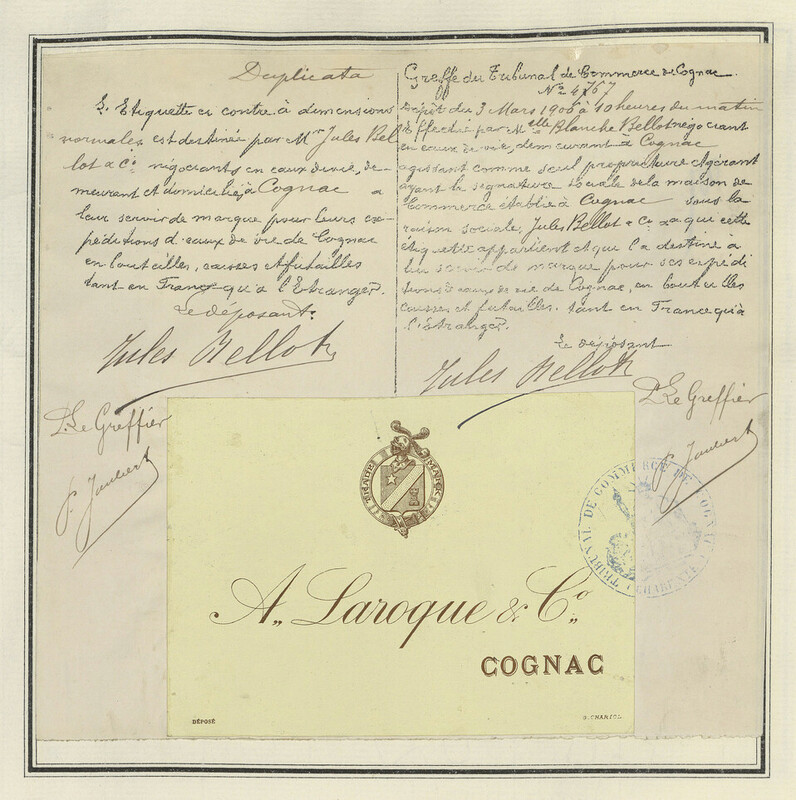 Duplicata
L'Etiquette ci contre à dimensions
normales est destinée par Mr Jules Bel
lot & Cie négociants en eaux de vie, de-
meurant et domiciliés à Cognac à
leur servir de marque pour leurs ex-
péditions d'eaux de vie de Cognac
en bouteilles, caisses et futailles
tant en France qu'à l'Etranger.
Le déposant:
Jules Bellot
Le Greffier
P. Jaubert
Greffe du Tribunal de Commerce de Cognac.
No 4767
Dépôt du 3 Mars 1906 à 10 heures du matin
Effectué par Melle Blanche Bellot négociant
en eaux de vie, demeurant à Cognac
agissant comme seul propriétaire & gérant
ayant la signature sociale de la maison de
Commerce établie à Cognac sous la
raison sociale, Jules Bellot & Co à qui cette
étiquette appartient et qui l'a destiné à
lui servir de marque pour ses expédi
tions d'eaux de vie de Cognac, en bouteilles
caisses et futailles. tant en France qu'à
l'Étranger.
Le déposant
Jules Bellot
Le Greffier
P. Jaubert
TRIBUNAL DE COMMERCE DE COGNAC
(CHARENTE)
TRADE MARCK
A,, Laroque & Co,,
COGNAC
DÉPOSÉ
G. CHARIOL